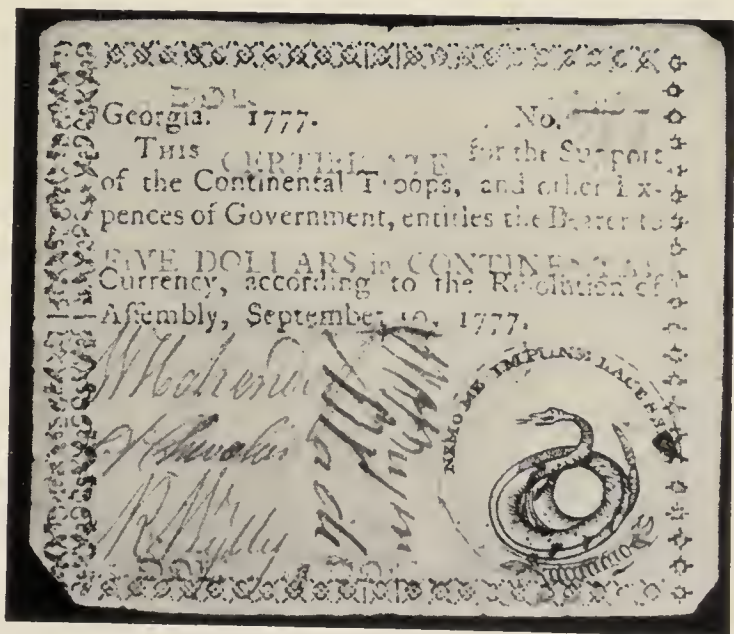 DOL.
Georgia. 1777. No.
THIS CERTIFICATE for the Support
of the Continental Troops, and other Ex-
pences of Government, entitles the Bearer to
FIVE DOLLARS in CONTINENTAL
Currency, according to the Resolution of
Assembly, September 10, 1777.
NEMO ME IMPUNE LACESSET
R Wylly